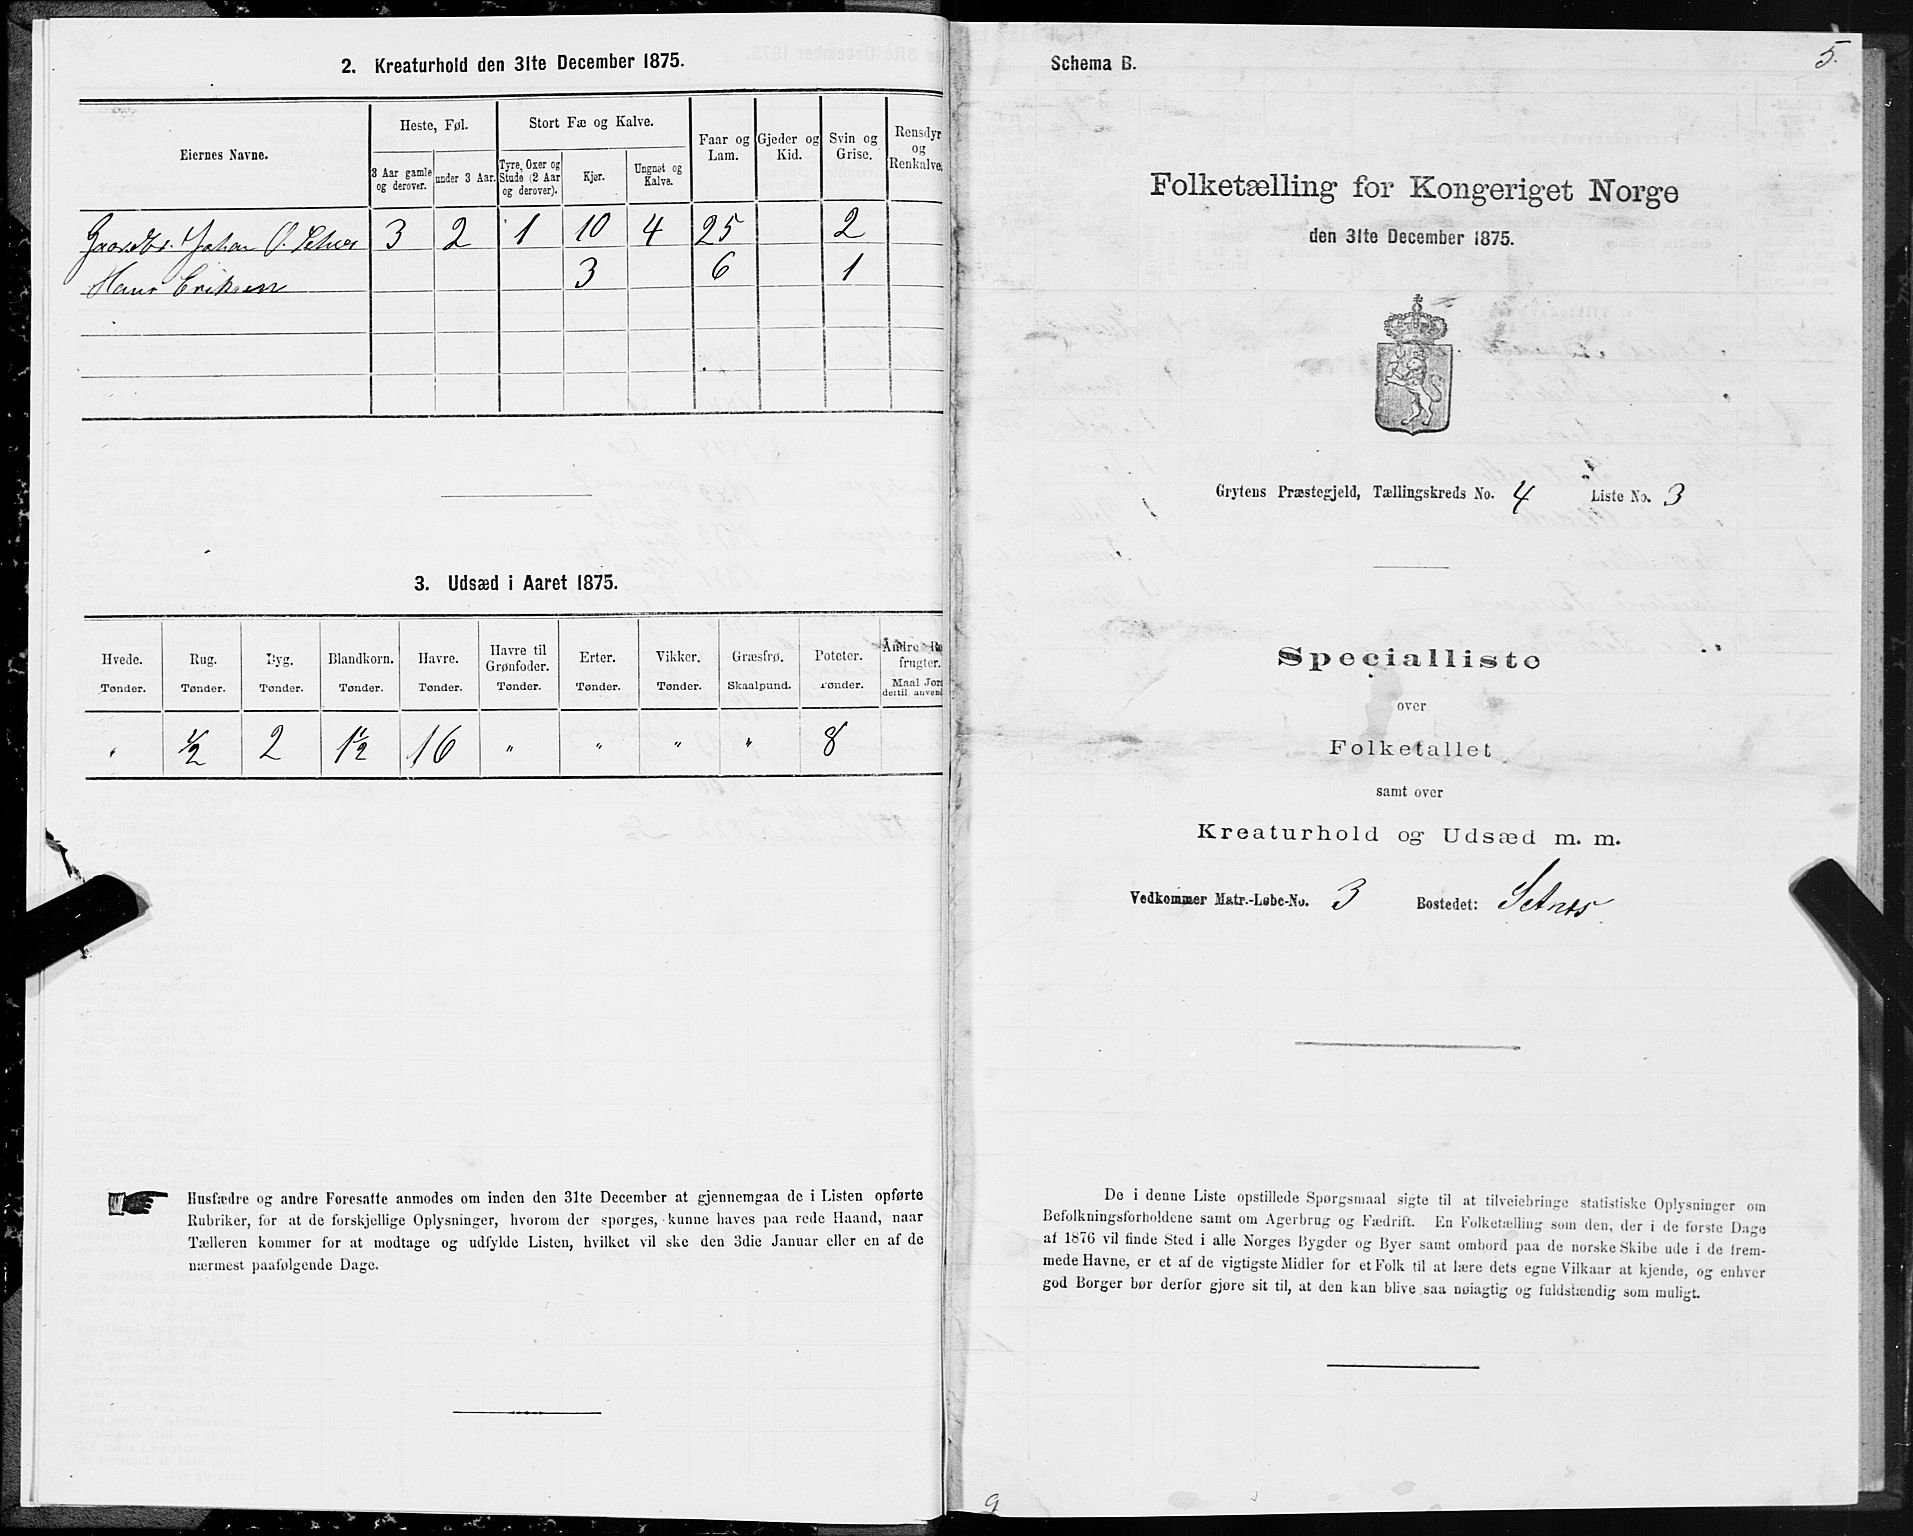 2. Kreaturhold den 31te December 1875.
Eiernes Navne.
Heste, Føl.
Stort Fæ og Kalve.
Faar og Lam.
Gjeder og Kid.
Svin og Grise.
Rensdyr og Renkalve.
3 Aar gamle og derover.
under 3 Aar.
Tyre, Oxer og Stude (2 Aar og derover).
Kjør.
Ungnøt og Kalve.
Gaardbr. Johan O. Setnes 3 2 1 10 4 25 2
Hans Eriksen 3 6 1
3. Udsæd i Aaret 1875.
Hvede. Rug. Byg. Blandkorn. Havre. Havre til Grønfoder. Erter. Vikker. Græsfrø. Poteter. Andre Ro frugter.
Tønder. Tønder. Tønder. Tønder. Tønder. Tønder. Tønder. Tønder. Skaalpund. Tønder. Maal Jord dertil anvend
" 1/2 2 1 1/2 16 " " " " 8
Husfædre og andre Foresatte anmodes om inden den 31te December at gjennemgaa de i Listen opførte
Rubriker, for at de forskjellige Oplysninger, hvorom der spørges, kunne haves paa rede Haand, naar
Tælleren kommer for at modtage og udfylde Listen, hvilket vil ske den 3die Januar eller en af de
nærmest paafølgende Dage.
Schema B.
5.
Folketælling for Kongeriget Norge
den 31te December 1875.
Grytens Præstegjeld, Tællingskreds No. 4 Liste No. 3
Specialliste
over
Folketallet
samt over
Kreaturhold og Udsæd m. m.
Vedkommer Matr.-Løbe-No. 3 Bostedet: Setnes.
De i denne Liste opstillede Spørgsmaal sigte til at tilveiebringe statistiske Oplysninger om
Befolkningsforholdene samt om Agerbrug og Fædrift. En Folketælling som den, der i de første Dage
af 1876 vil finde Sted i alle Norges Bygder og Byer samt ombord paa de norske Skibe ude i de frem-
mede Havne, er et af de vigtigste Midler for et Folk til at lære dets egne Vilkaar at kjende, og enhver
god Borger bør derfor gjøre sit til, at den kan blive saa nøiagtig og fuldstændig som muligt.